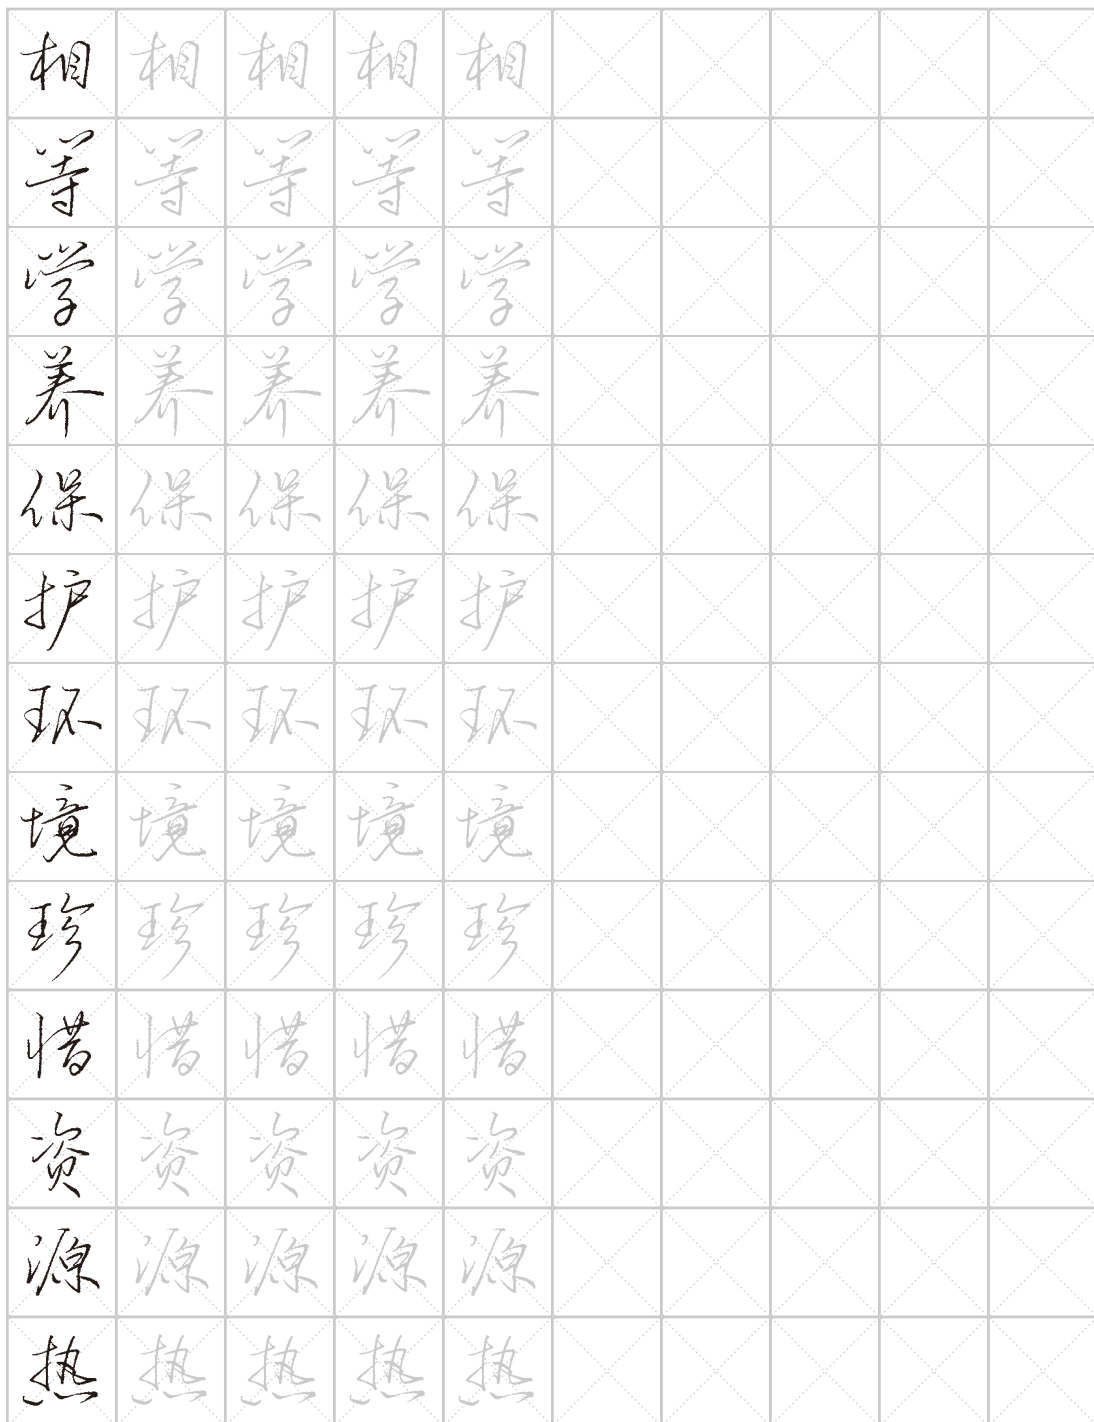 相相相相相
等等等等等
学学学学学
养养养养养
保保保保保
护护护护护
环环环环环
境境境境境
珍珍珍珍珍
惜惜惜惜惜
资资资资资
源源源源源
热热热热热